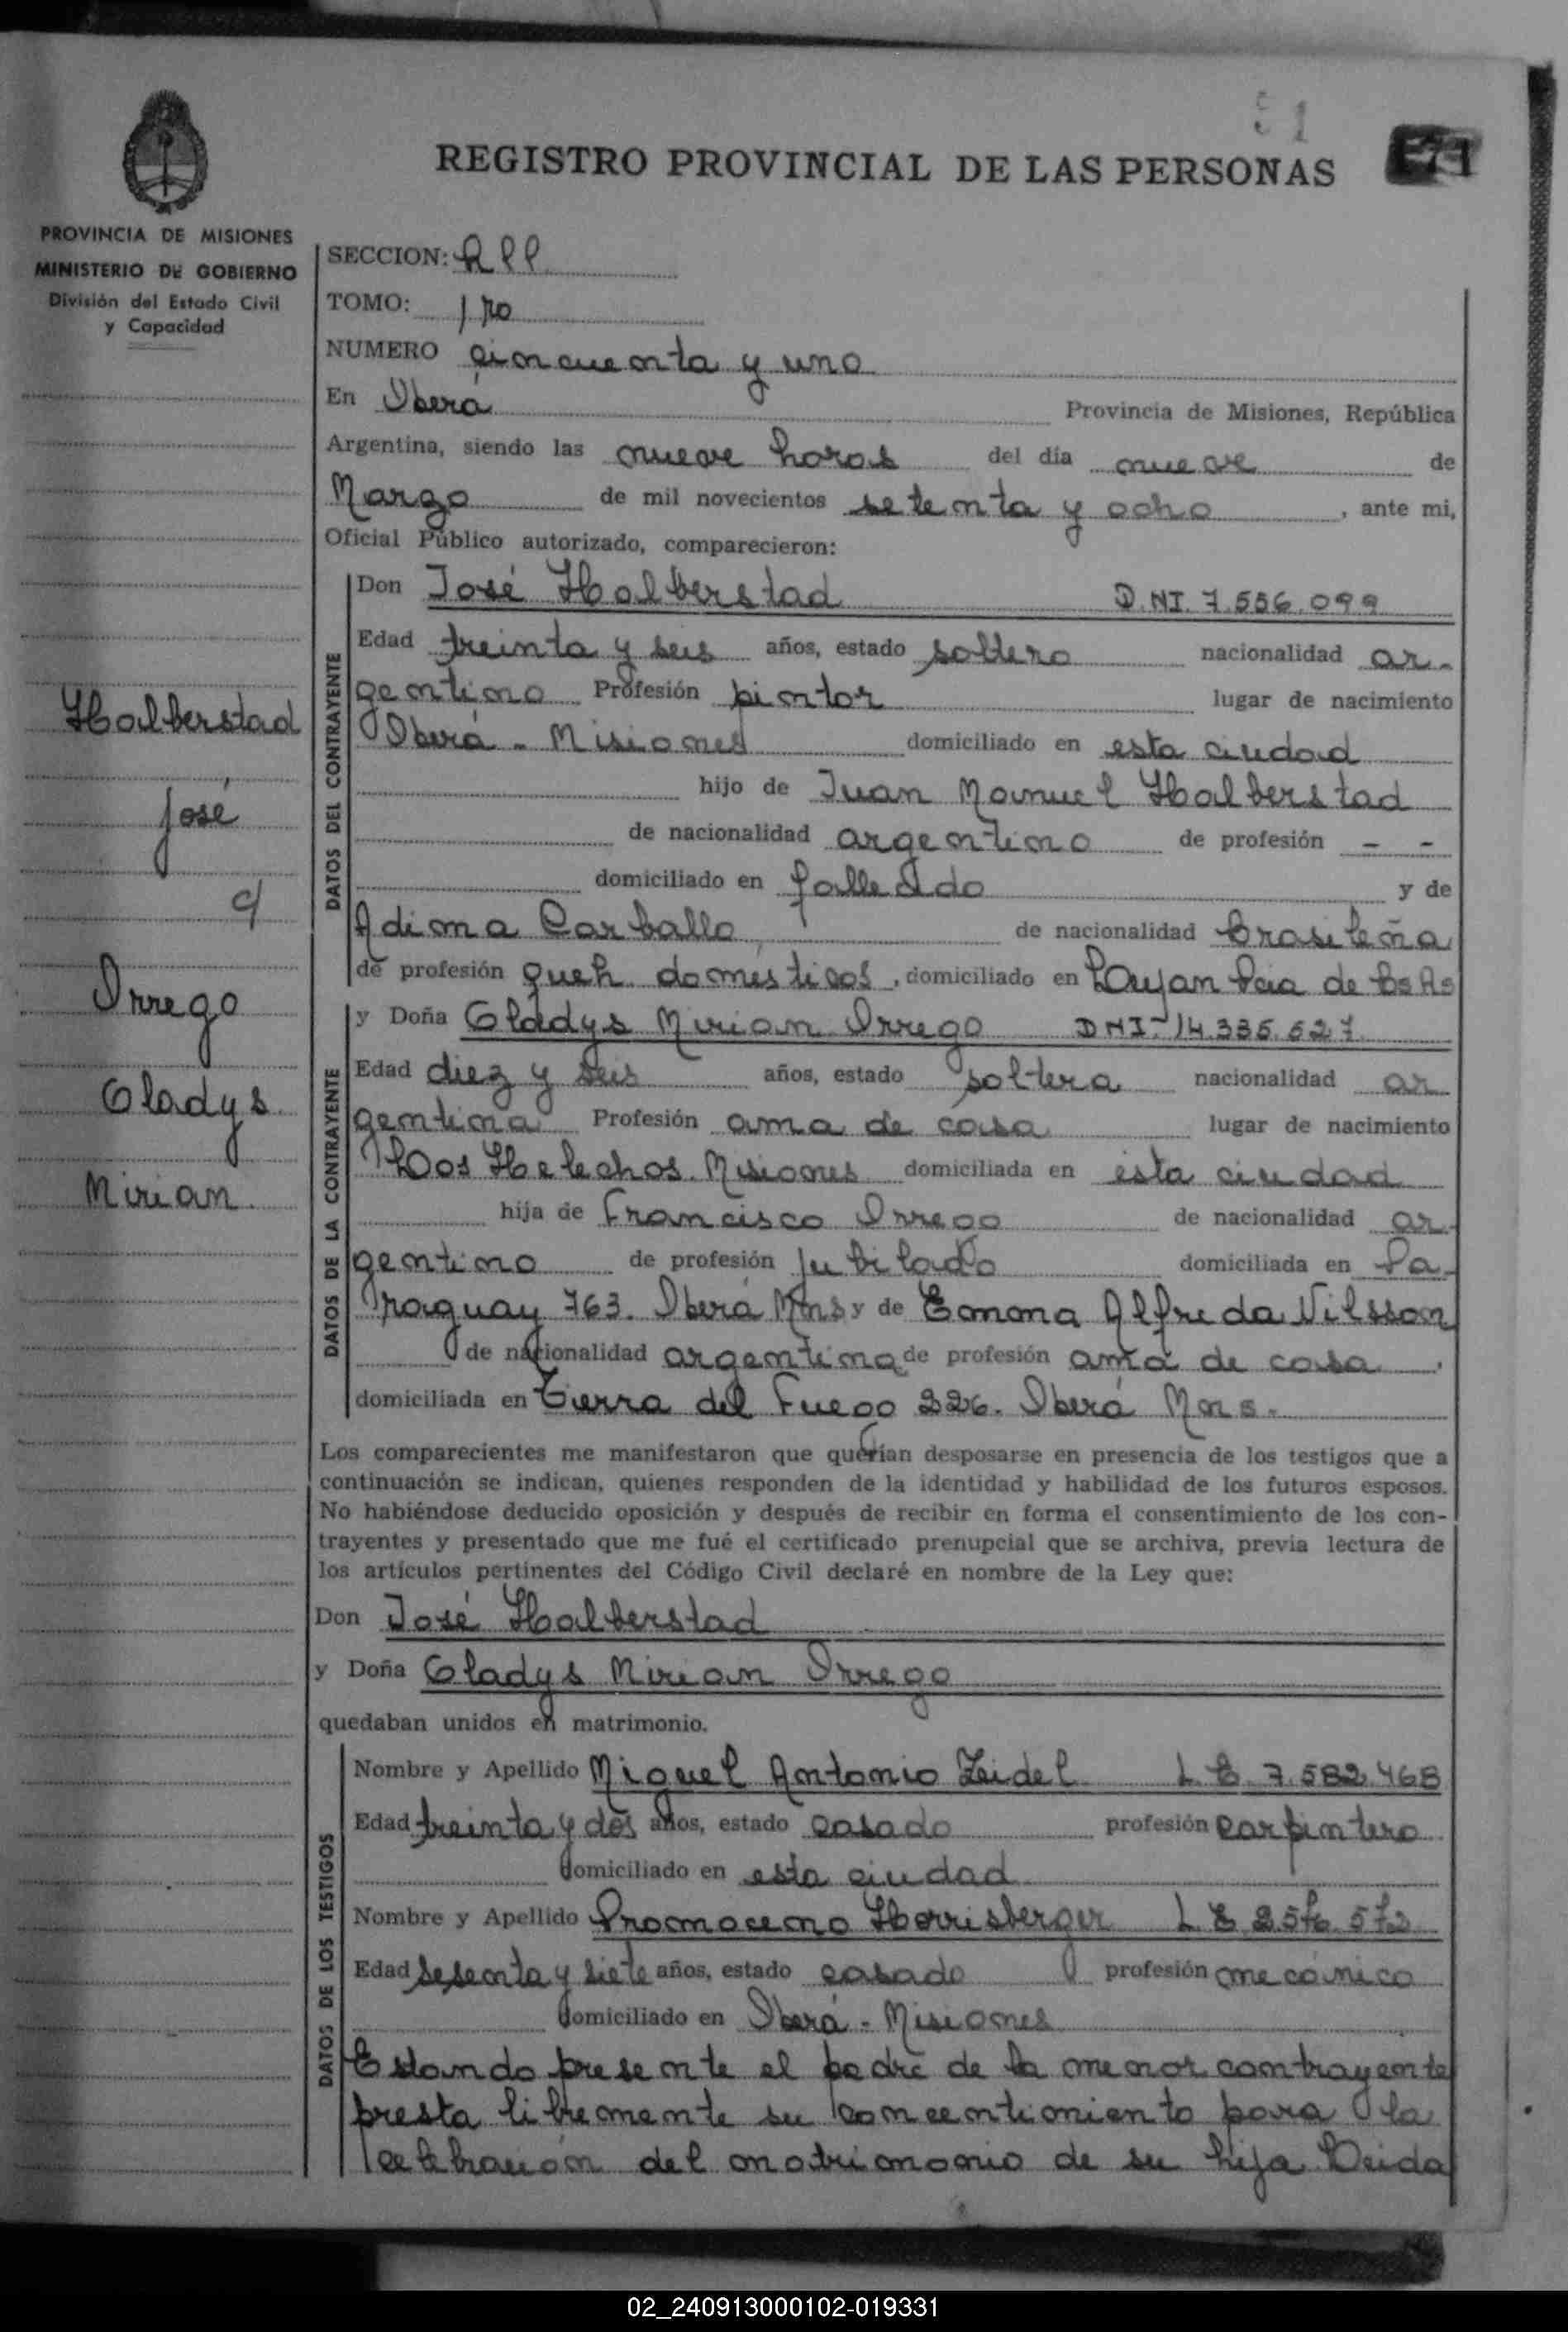 51
REGISTRO PROVINCIAL DE LAS PERSONAS
PROVINCIA DE MISIONES
MINISTERIO DE GOBIERNO
División del Estado Civil
y Capacidad
SECCION: RPP
TOMO: 1ro
NUMERO cincuenta y uno
En Oberá Provincia de Misiones, República
Argentina, siendo las nueve horas del día nueve de
Marzo de mil novecientos setenta y ocho, ante mi,
Oficial Público autorizado, comparecieron:
DATOS DEL CONTRAYENTE
Don José Halberstad D.NI. 7.556.099
Edad treinta y seis años, estado soltero nacionalidad ar-
gentino Profesión pintor lugar de nacimiento
Oberá - Misiones domiciliado en esta ciudad
hijo de Juan Manuel Halberstad
de nacionalidad argentino de profesión - -
domiciliado en fallecido y de
Adima Carballo de nacionalidad brasileña
de profesión queh. domésticos, domiciliado en Lujan Pcia de Bs As
DATOS DE LA CONTRAYENTE
y Doña Gladys Mirian Orrego DNI- 14.335.527
Edad diez y seis años, estado soltera nacionalidad ar
gentina Profesión ama de casa lugar de nacimiento
Los Helechos. Misiones domiciliada en esta ciudad
hija de Francisco Orrego de nacionalidad ar-
gentino de profesión jubilado domiciliada en Pa-
raguay 763. Oberá Mnes y de Emma Alfreda Vilsson
de nacionalidad argentina de profesión ama de casa,
domiciliada en Tierra del Fuego 226. Oberá Mns.
Los comparecientes me manifestaron que querían desposarse en presencia de los testigos que a
continuación se indican, quienes responden de la identidad y habilidad de los futuros esposos.
No habiéndose deducido oposición y después de recibir en forma el consentimiento de los con-
trayentes y presentado que me fué el certificado prenupcial que se archiva, previa lectura de
los artículos pertinentes del Código Civil declaré en nombre de la Ley que:
Don José Halberstad
y Doña Gladys Mirian Orrego
quedaban unidos en matrimonio.
DATOS DE LOS TESTIGOS
Nombre y Apellido Miguel Antonio Zeidel L.E. 7.582.468
Edad treinta y dos años, estado casado profesión carpintero
domiciliado en esta ciudad
Nombre y Apellido Horrisberger L E 2.576.572
Edad sesenta y siete años, estado casado profesión mecánico
domiciliado en Oberá - Misiones
Estando presente el padre de la menor contrayente
presta libremente su concentimiento para la
celebración del matrimonio de su hija. Leida
Halberstad
José
c/
Orrego
Gladys
Mirian
02_240913000102-019331